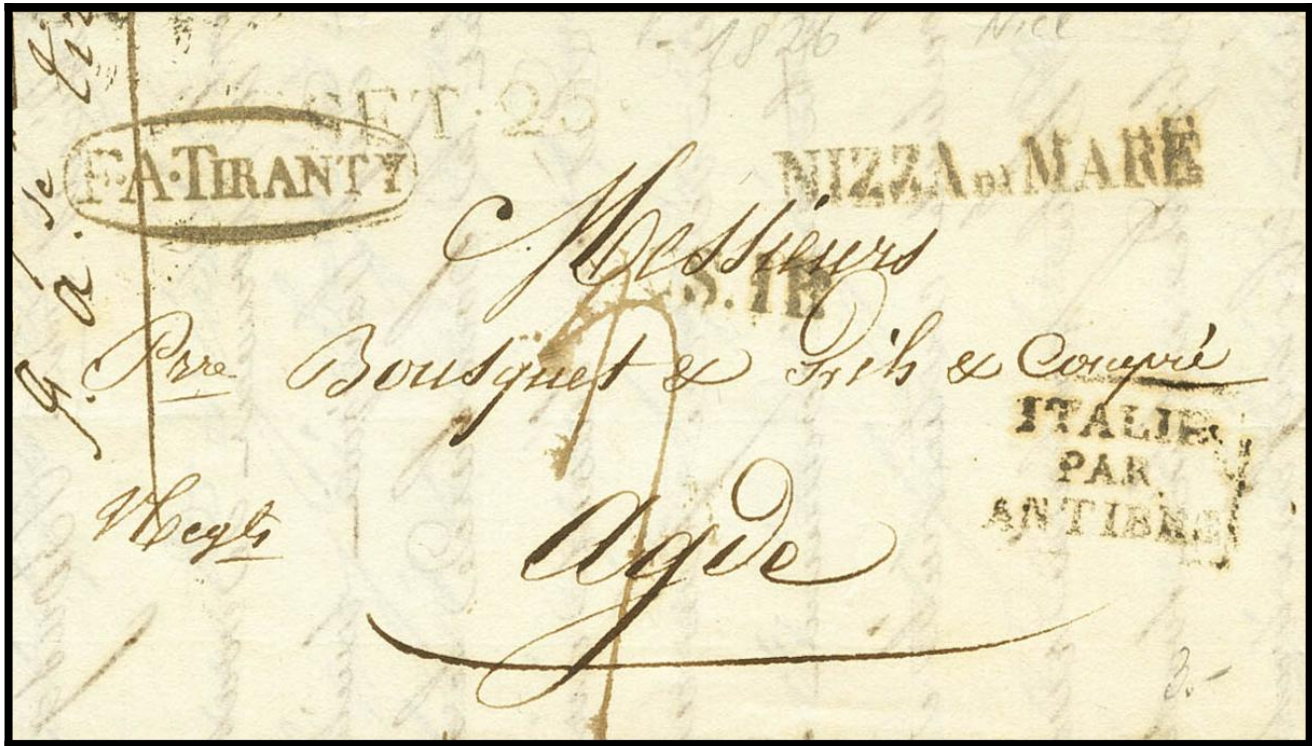 1826 Nice
SET. 25
F.A. TIRANTY
NIZZA DI MARE
Messieurs
Pre Bousquet & fils & Compié
ITALIE
PAR
ANTIBES
Negts
Agde
3.-